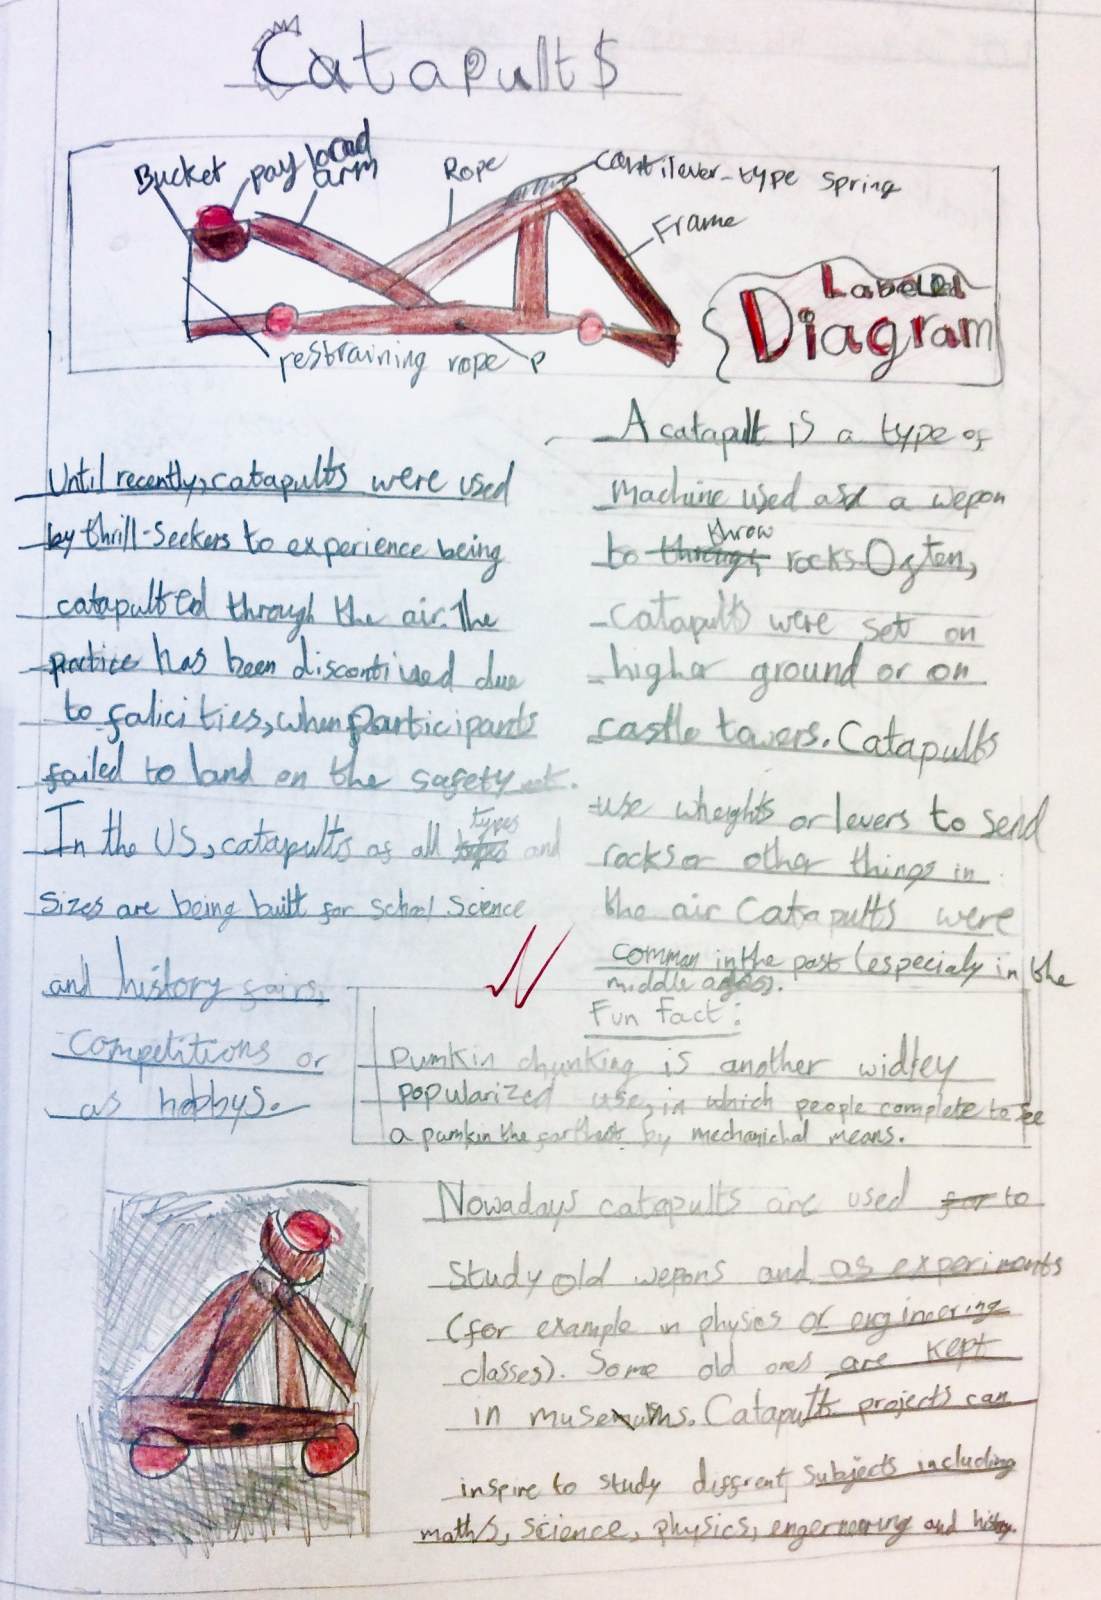 Catapult$
Bucket
payload
arm
Rope
Cantilever-type spring
Frame
restraining rope
P
Labeled
Diagram
A catapult is a type of
machine used as a wepon
to throw rocks. Ogten,
catapults were set on
higher ground or on
castle towers. Catapults
use wheights or levers to send
rocks or other things in
the air Catapults were
comman in the past (especialy in the
middle ages).
Until recently, catapults were used
by thrill-seekers to experience being
catapulted through the air. The
practice has been discontiued due
to falicities, when participants
failed to land on the safety net.
In the US, catapults of all types and
sizes are being built for school science
and history fairs,
competitions or
as hobbys.
Fun fact:
Pumkin chunking is another widley
popularized use, in which people complete to see
a pumkin the farthest by mechanichal means.
Nowadays catapults are used for to
study old wepons and as experiments
(for example in physics or engineering
classes). Some old ones are kept
in museums. Catapults projects can
inspire to study different subjects including
maths, science, physics, engerneering and history.